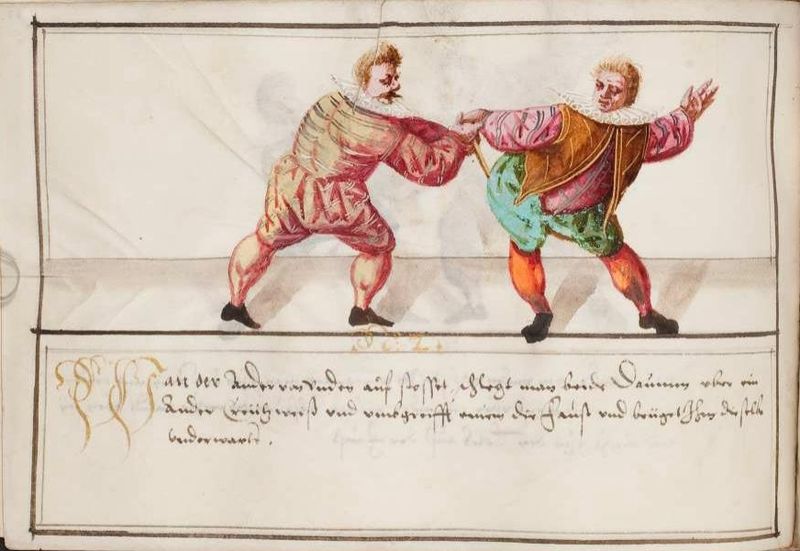 52.
Wan der Ander von Unden auf stosset, schlegt man beide Daumen vber ein
Ander Creützweiß vnd vmbgreifft einem die Faust vnd beüget Ihm dieselb
vnderwarts.